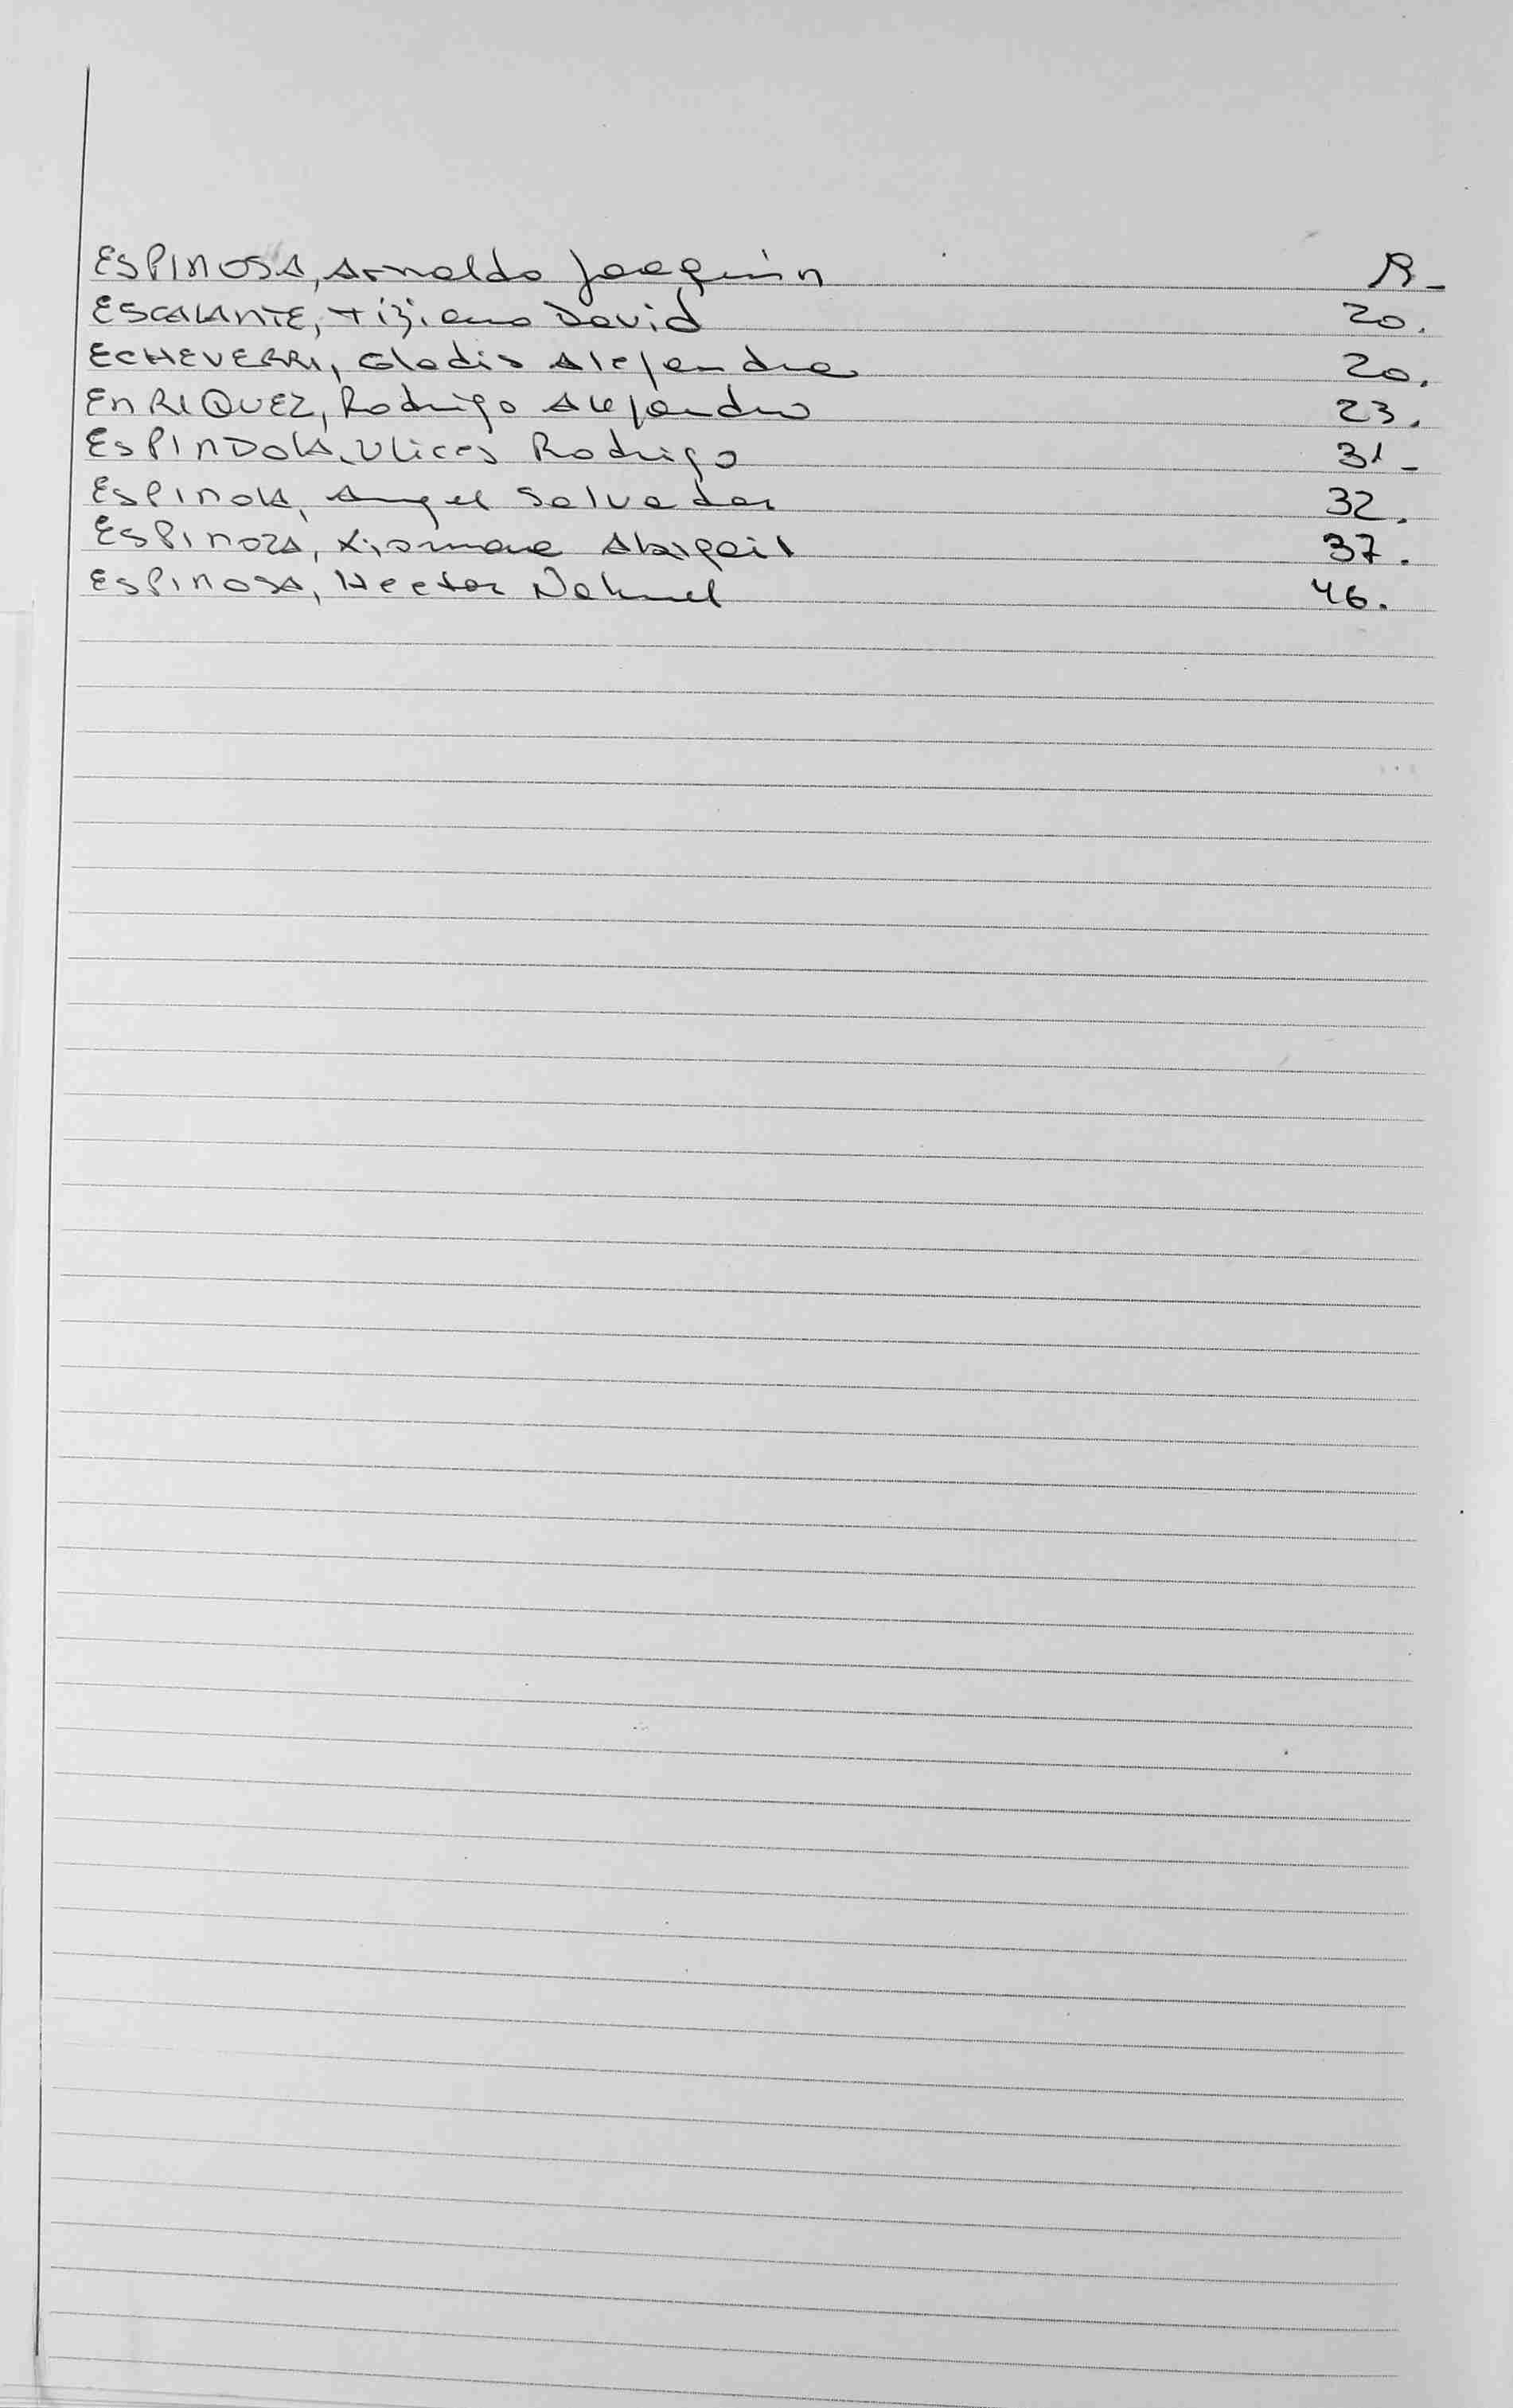 ESPINOSA, Arnaldo Joaquin
ESCALANTE, Tiziano David 20.
ECHEVERRI, Gladis Alejandra 20.
EnRIQUEZ, Rodrigo Alejandro 23.
ESPINDOLA, Ulices Rodrigo 31-
ESPINOLA, Angel Salvador 32.
ESPINOZA, Xiomara Abigail 37.
ESPINOSA, Hector Nahuel 46.